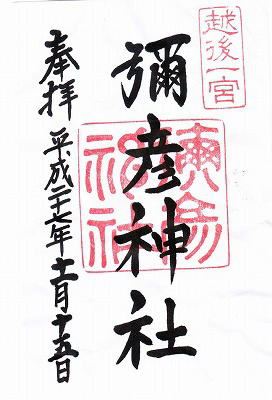 越後一宮
彌彦神社
奉拝
平成二十七年十一月十五日